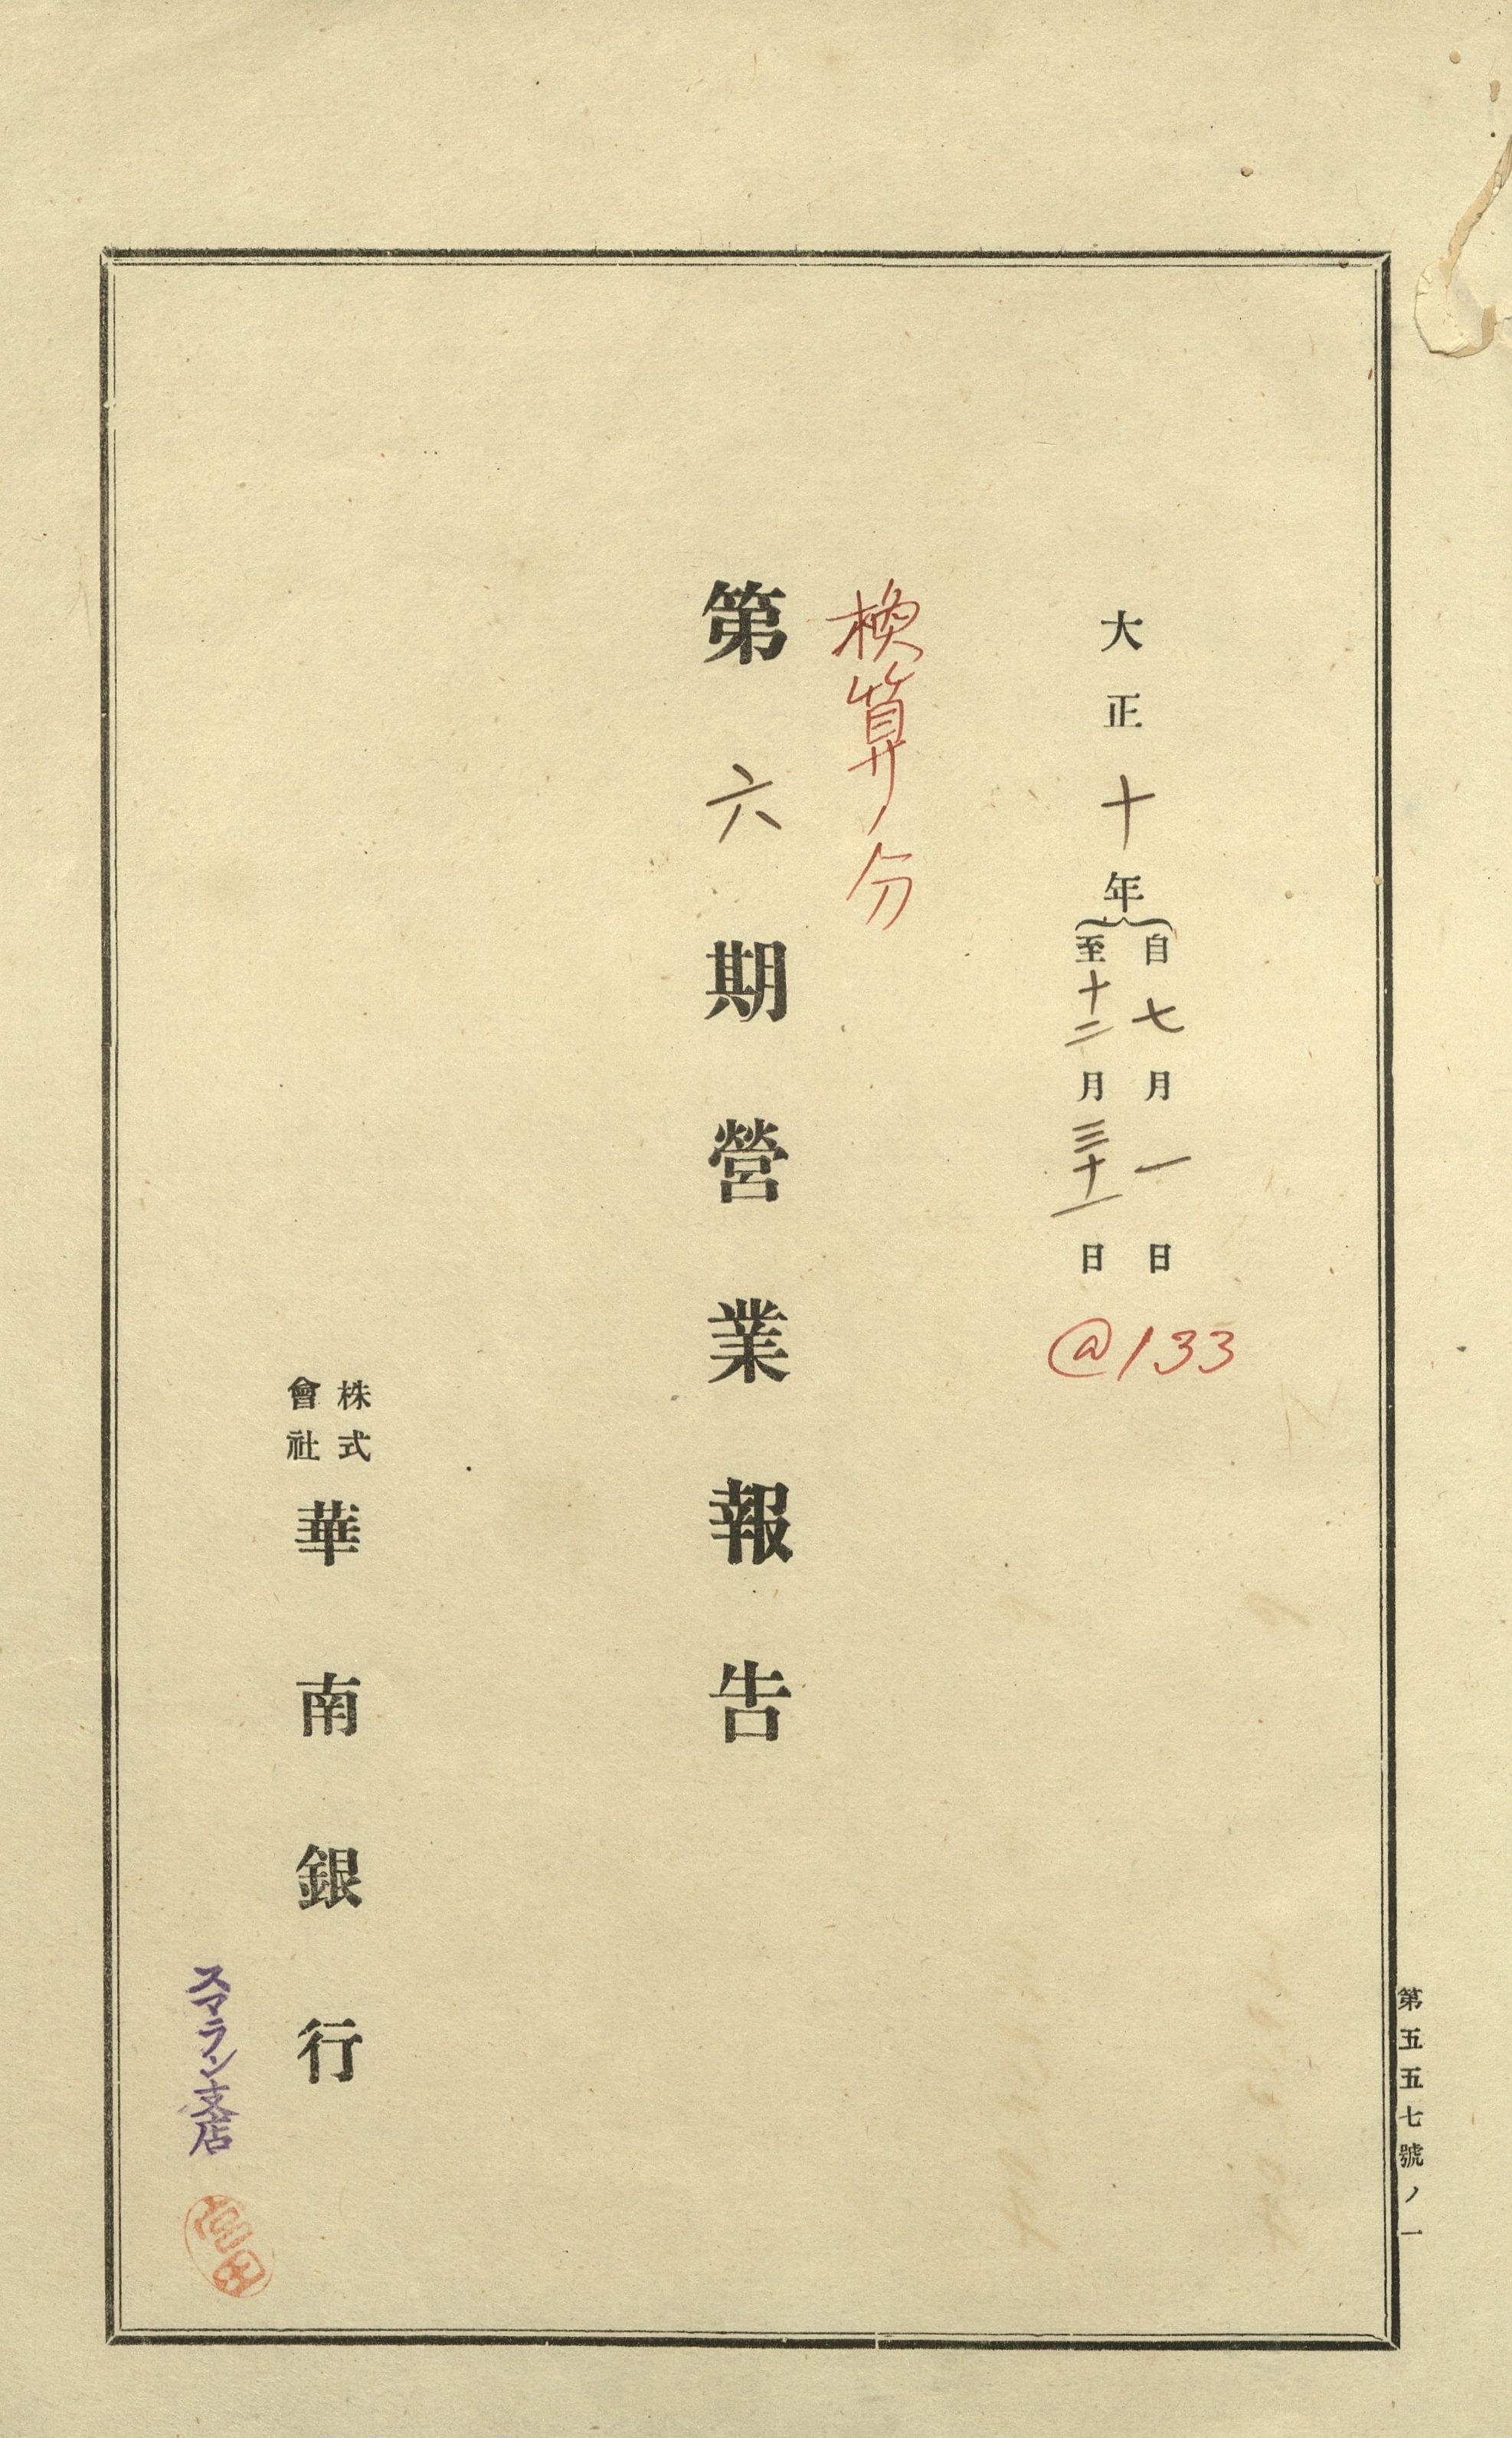 大正十年
自七月一日
至十二月三十一日
@133
換算ノ分
第六期營業報告
株式
會社
華南銀行
スマラン支店
第五五七號ノ一